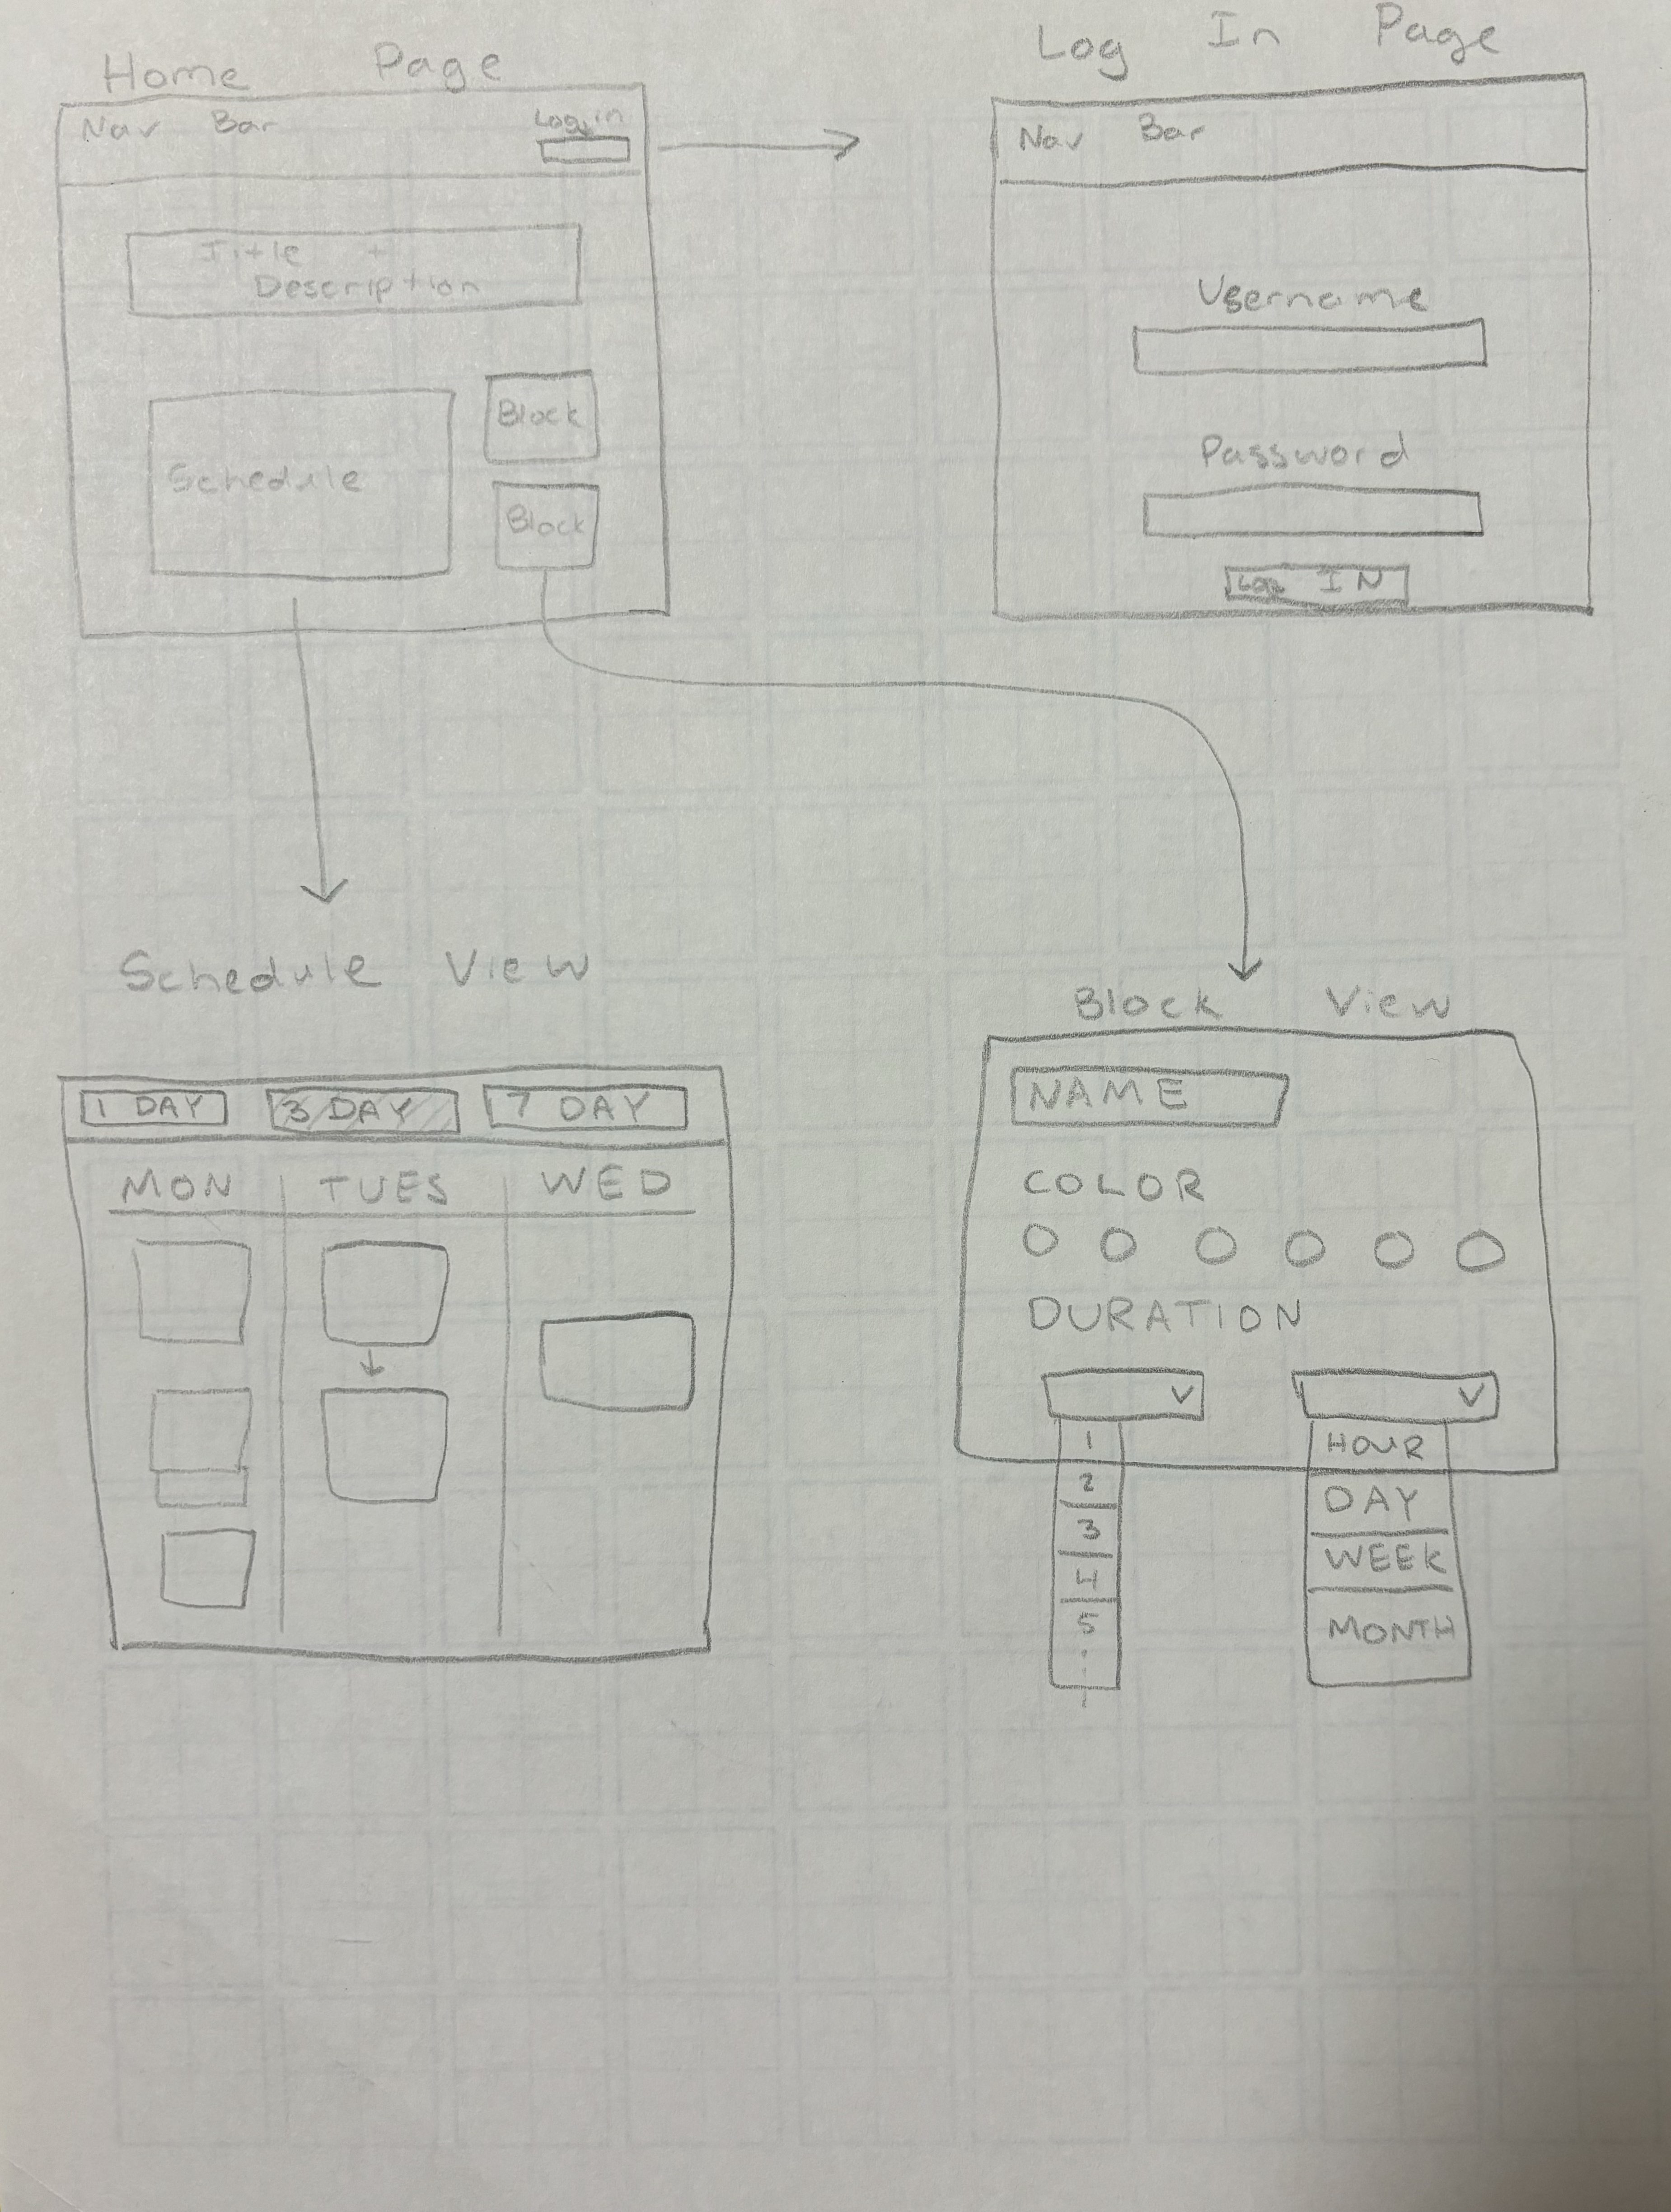 Home Page
Nav Bar
Log in
Title +
Description
Schedule
Block
Block
Log In Page
Nav Bar
Username
Password
Log IN
Schedule View
1 DAY 3 DAY 7 DAY
MON TUES WED
Block View
NAME
COLOR
DURATION
1
2
3
4
5
HOUR
DAY
WEEK
MONTH